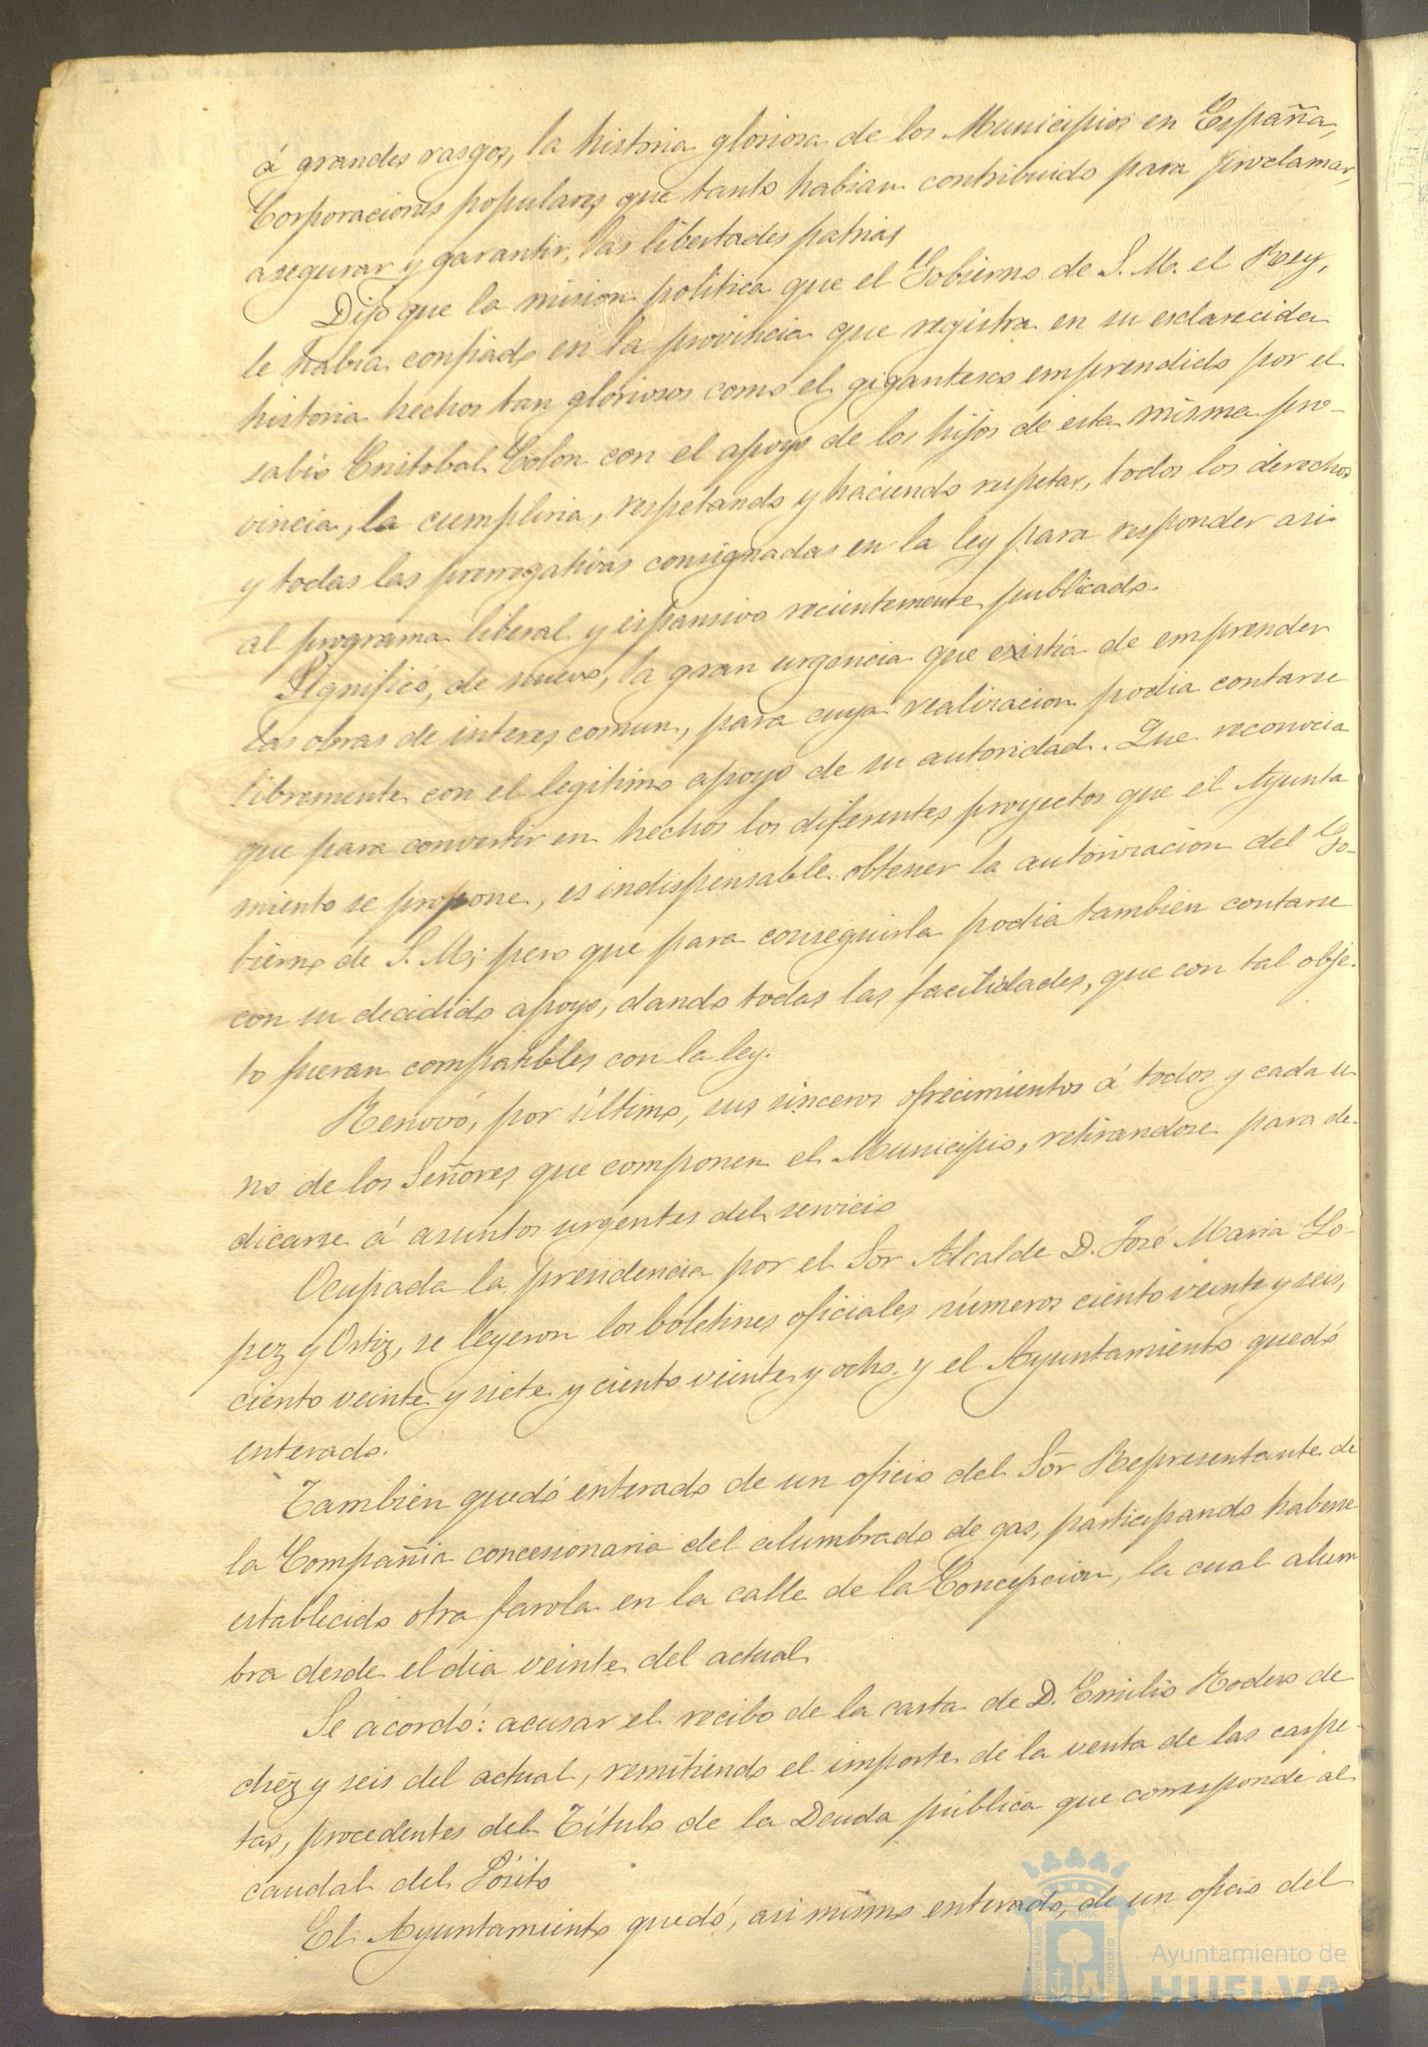 á grandes rasgos, la historia gloriosa de los Municipios en España,
Corporaciones populares que tanto habian contribuido para proclamar,
asegurar y garantir, las libertades patrias
Dijo que la mision politica que el Gobierno de S. M. el Rey,
le habia confiado en la provincia que registra en su esclarecida
historia hechos tan gloriosos como el gigantesco emprendido por el
sabio Cristobal Colon con el apoyo de los hijos de esta misma pro-
vincia, la cumpliria, respetando y haciendo respetar, todos los derechos
y todas las prerrogativas consignadas en la ley para responder asi
al programa liberal y espansivo recientemente publicado.
Significó, de nuevo, la gran urgencia que existia de emprender
las obras de interes comun, para cuya realizacion podia contarse
libremente con el legitimo apoyo de su autoridad. Que reconocia
que para convertir en hechos los diferentes proyectos que el Ayunta
miento se propone, es indispensable obtener la autorizacion del Go-
bierno de S. M; pero que para conseguirla podia tambien contarse
con su decidido apoyo, dando todas las facilidades, que con tal obje-
to fueran compatibles con la ley.
Renovó, por último, sus sinceros ofrecimientos á todos y cada u-
no de los Señores que componen el Municipio, retirandose para de-
dicarse á asuntos urgentes del servicio
Ocupada la presidencia por el Sor Alcalde D. José Maria Lo-
pez y Ortiz, se leyeron los boletines oficiales números ciento veinte y seis,
ciento veinte y siete y ciento veinte y ocho. y el Ayuntamiento quedó
enterado.
Tambien quedó enterado de un oficio del Sor Representante de
la Compañia concesionaria del alumbrado de gas, participando haberse
establecido otra farola en la calle de la Concepcion, la cual alum
bra desde el dia veinte del actual
Se acordó: acusar el recibo de la carta de D. Emilio Rodero de
diez y seis del actual, remitiendo el importe de la venta de las carpe-
tas, procedentes del Título de la Deuda pública que corresponde al
caudal del Pósito
El Ayuntamiento quedó, asi mismo enterado, de un oficio del
Ayuntamiento de
HUELVA